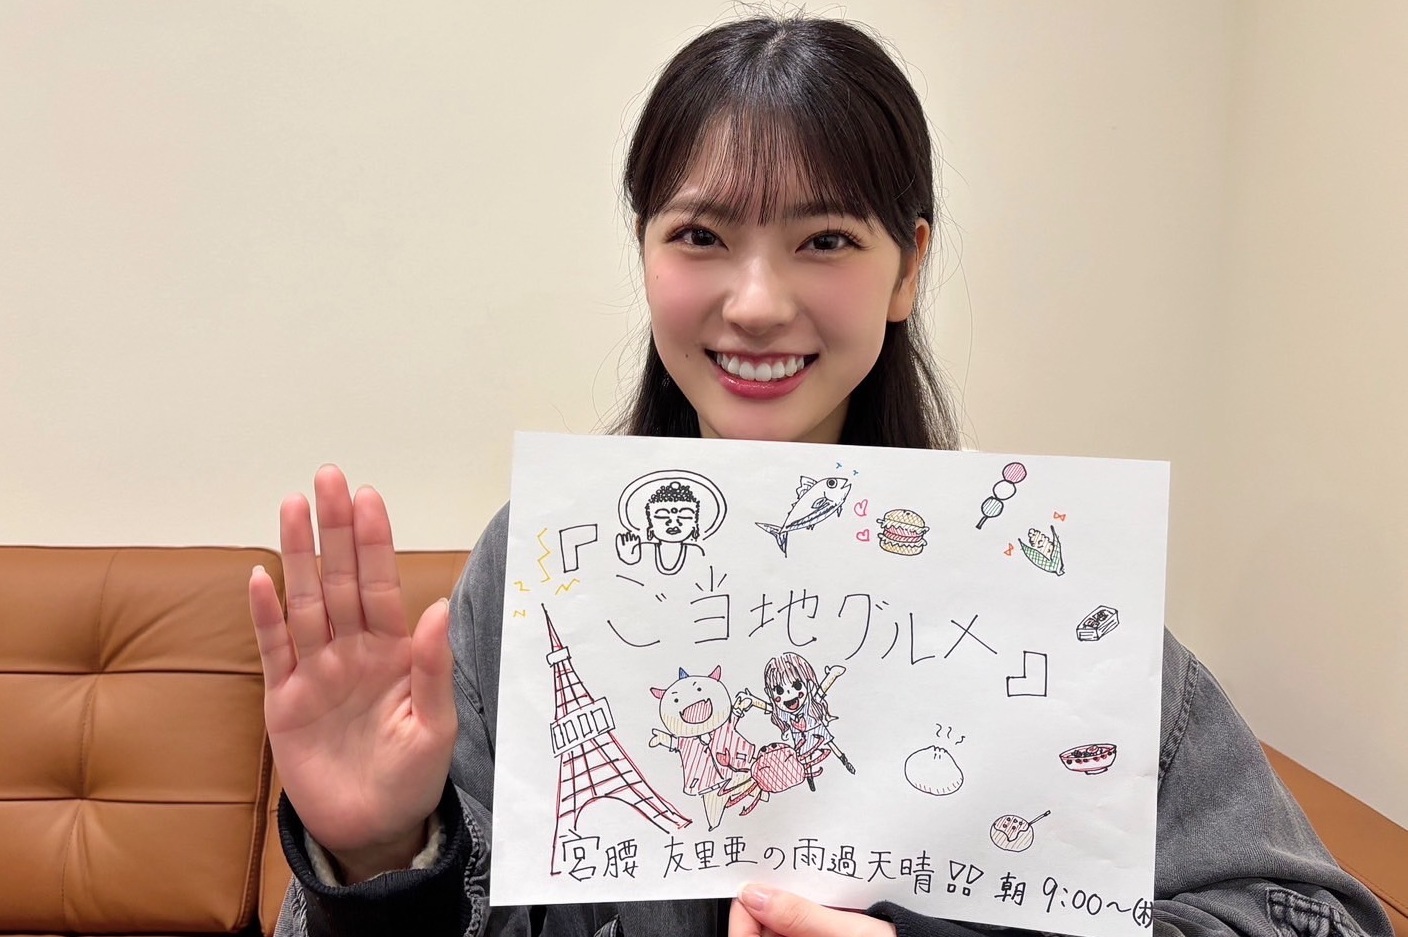 『ご当地グルメ』
宮腰 友里亜の雨過天晴!! 朝 9:00〜㈭